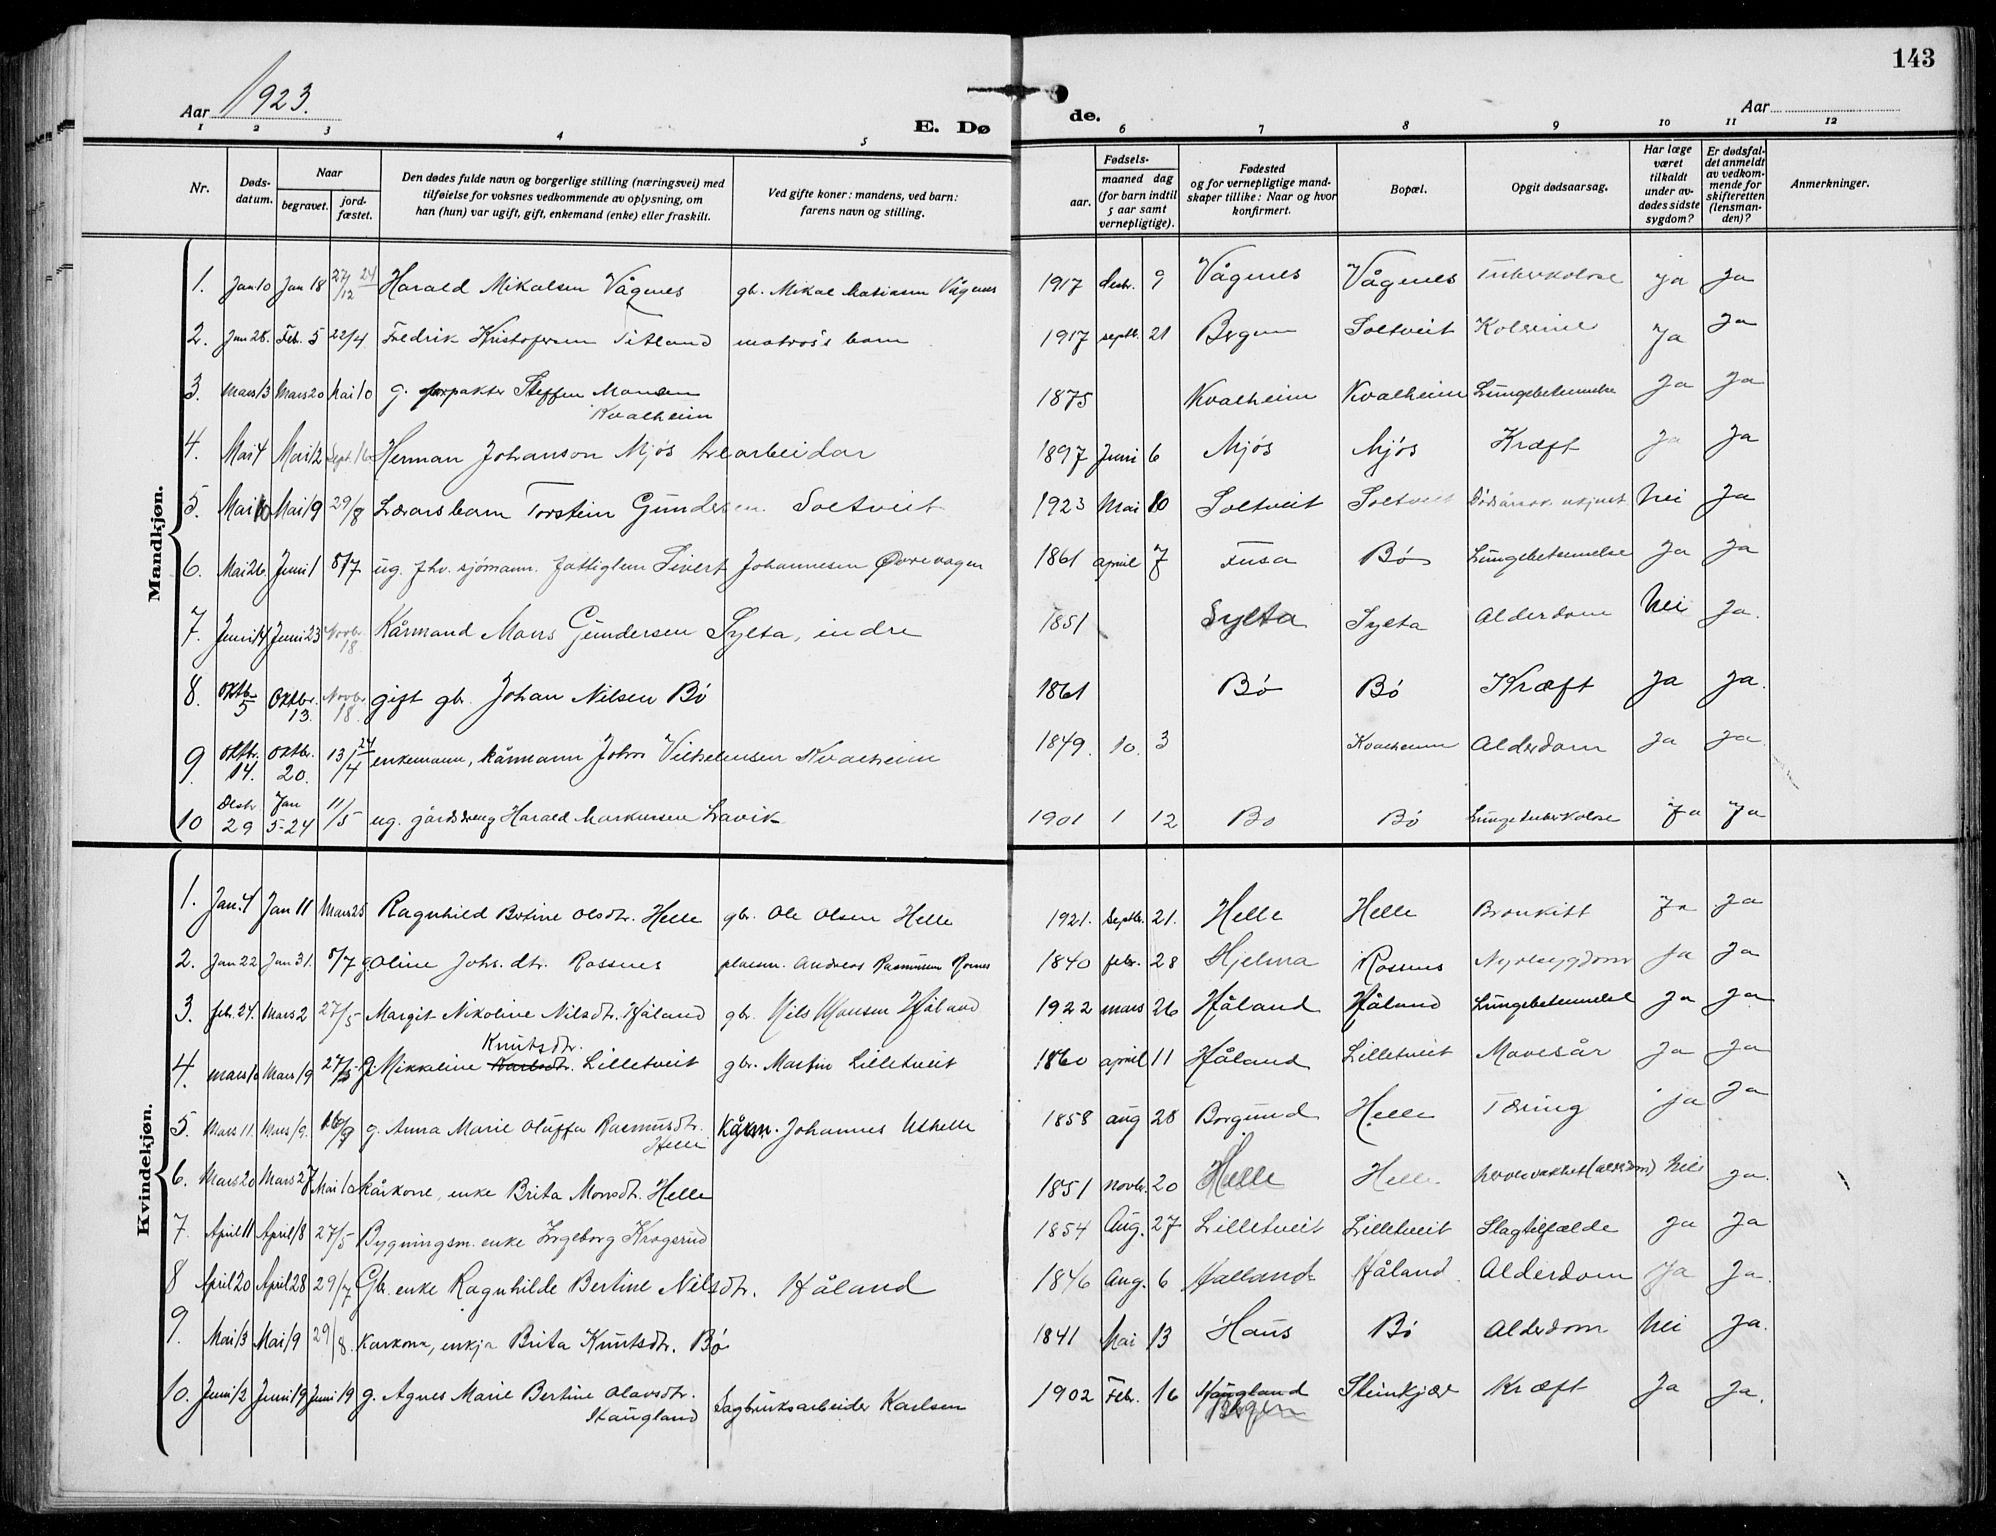 143
Aar 1923.
E. Døde.
Aar
1 2 3 4 5 6 7 8 9 10 11 12
Nr.
Døds-
datum.
Naar
begravet.
jord-
fæstet.
Den dødes fulde navn og borgerlige stilling (næringsvei) med
tilføielse for voksnes vedkommende av oplysning, om
han (hun) var ugift, gift, enkemand (enke) eller fraskilt.
Ved gifte koner: mandens, ved barn:
farens navn og stilling.
Fødsels-
aar.
maaned dag
(for barn indtil
5 aar samt
vernepligtige).
Fødested
og for vernepligtige mand-
skaper tillike: Naar og hvor
konfirmert.
Bopæl.
Opgit dødsaarsag.
Har læge
været
tilkaldt
under av-
dødes sidste
sygdom?
Er dødsfal-
det anmeldt
av vedkom-
mende for
skifteretten
(lensman-
den)?
Anmerkninger.
Mandkjøn.
1. Jan 10 Jan 18 27/12 24 Harald Mikalsen Vågenes gb. Mikal Matiasen Vågenes 1917 9 Vågenes Vågenes Tuberkolose ja ja
2. Jan 28. Feb. 5 22/4 Fredrik Kristofersen Titland matros's barn 1917 septb. 21 Bergen Soltveit Ja Ja
3. Mars 13 Mars 20 Mai 10 g. forpakter Steffen Monsen
Kvalheim 1875 Kvalheim Kvalheim Lungebetennelse Ja Ja
4. Mai 4 Mai 12 Sept. 16 Herman Johanson Mjøs 1897 Juni 6 Mjøs Mjøs Kræft Ja Ja
5. Mai 10 Mai 19 29/8 Lærarsbarn Torstein Gundersen Soltveit 1923 Mai 10 Soltveit Soltveit Nei Ja
6. Mai 26. Juni 1 8/7 ug. fhv. sjømann. fattiglem Sivert Johannesen Øvrevagen 1861 april 7 Fusa Bø Lungebetennelse Ja Ja
7. Juni 14 Juni 23 Novbr. 18 Kårmand Mons Gundersen Sylta, indre 1851 Sylta Sylta Alderdom Nei Ja.
8. Oktb. 5 Oktbr. 13 Novbr. 18. gift gb. Johan Nilsen Bø 1861 Bø Bø Kræft Ja Ja.
9. Oktbr. 14. Oktbr. 20. 13/4 24 enkemann, kårmann Johs Vilhelmsen Kvalheim 1849. 10. 3 Kvalheim Alderdom Ja Ja.
10 Desbr 29 Jan 5-24 11/5 ug. gårdsdreng Harald Markussen Lavik 1901 1 12 Bø Bø Lungetuberkolose Ja Ja
Kvindekjøn.
1. Jan. 4 Jan 11 Mars 25 Ragnhild Bertine Olsdtr. Helle gbr. Ole Olsen Helle 1921. Septb. 21. Helle Helle Bronkitt Ja Ja
2. Jan 22 Jan 31. 8/7 g. Oline Johs. dtr. Rossnes plassm. Andreas Rasmussen Rosnes 1840 febr. 28 Hjelma Rossnes Nyresygdom Ja Ja
3. feb. 24. Mars 2 27/5 Margit Nikoline Nilsdtr. Håland gbr. Nils Monsen Håland 1922 mars 26 Håland Håland Lungebetennelse Ja Ja
4. mars 10 Mars 19 27/5 g. Mikkeline Karlsdtr. Knutsdtr. Lilletveit gbr. Martin Lilletveit 1860 april 11 Håland Lilletveit Mavesår Ja Ja
5. Mars 11. Mars 19. 16/9 g. Anna Marie Oluffa Rasmusdtr.
Helle Kårm. Johannes Uthelle 1858 aug 28 Borgund Helle Tæring Ja Ja
6. Mars 20 Mars 27 Mai 10 kårkone, enke Brita Monsdtr. Helle 1851 novbr. 20 Helle Helle (alderdom) Nei Ja.
7. April 11 April 18 27/5 Bygningsm. enke Ingeborg Krogsrud 1854 Aug. 27 Lilletveit Lilletveit Slagtilfælde Ja Ja
8 April 20 April 28 29/7 Gbr. enke Ragnhilde Bertine Nilsdtr. Håland 1846 Aug. 6 Halland Håland Alderdom Ja Ja.
9. Mai 13 Mai 19 29/8. Karkona, enkja Brita Knutsdtr. Bø 1841 Mai 13 Haus Bø Alderdom Nei Ja.
10. Juni 12 Juni 19 Juni 19 g. Agnes Marie Bertine Olavsdtr.
Haugland Sagbruksarbeider Karlsen 1902 Febr. 16 Haugland Bergen Steinkjær Kræft Ja Ja.